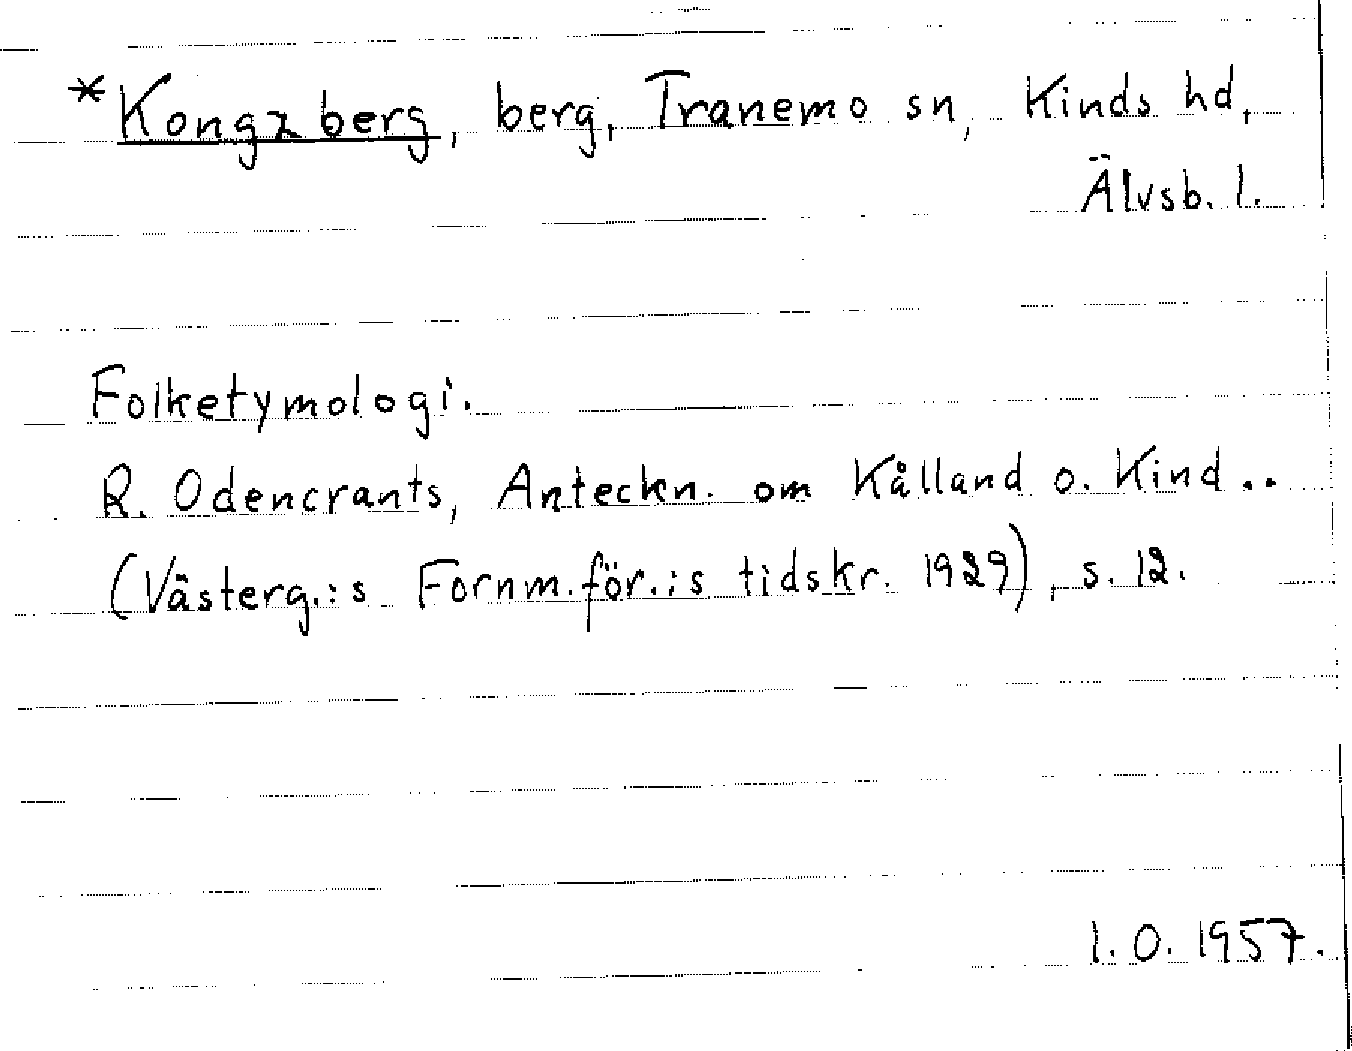 *Kongzberg, berg, Tranemo sn, Kinds hd,
Älvsb. l.
Folketymologi.
R. Odencrants, Anteckn. om Kålland o. Kind ..
(Västerg.:s Fornm.för.:s tidskr. 1929), s. 12.
I. O. 1957.